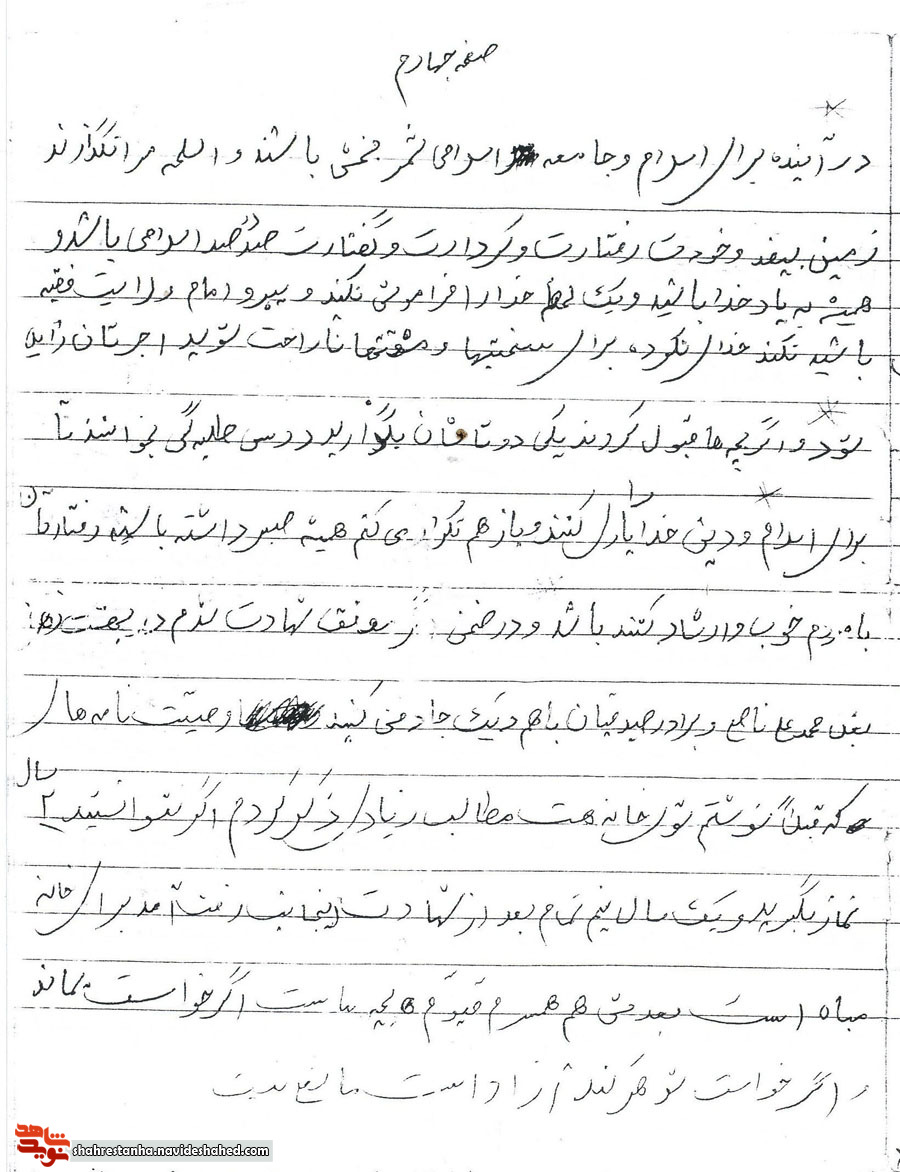 صفحه چهارم
در آینده برای اسلام و جامعه اسلامی ثمر بخشی باشند و اسلحه مرا نگذارند
زمین بیفند و خودت رفتارت و کردارت و گفتارت صد در صد اسلامی باشد و
همیشه به یاد خدا باشید و یک لحظه خدا را فراموش نکند و پیرو امام ولایت فقیه
باشید نکند خدای نکرده برای سختیها و مشقتها ناراحت شوید اجرتان زایل
شود و اگر بچه ها قبول کردند یکی دو تا شان بگذارید درس طلبه گی بخوانند تا
برای اسلام و دین خدا یاری کنند و باز هم تکرار می کنم همیشه صبر داشته باشید رفتارتان
با مردم خوب و ارشاد کننده باشد و در ضمن موفق شهادت شدم در بهشت
بغل محمد علی ناصح و برادر صیدقیان با هم دیک جا دفن کنید وصیت نامه های
که قبلاً نوشتم توی خانه هست مطالب زیادی ذکر کردم اگر توانستید ۲ سال
نماز بگیرید و یک سال نیم تمام بعد از شهادت اینجانب رفت آمد برای خانه
مباه است بعد من هم همسرم قیوم بچه هاست اگر خواست بماند
اگر خواست شوهر کند آزاد است مانع نیست
شاهد
نوید
shahrestanha.navideshahed.com